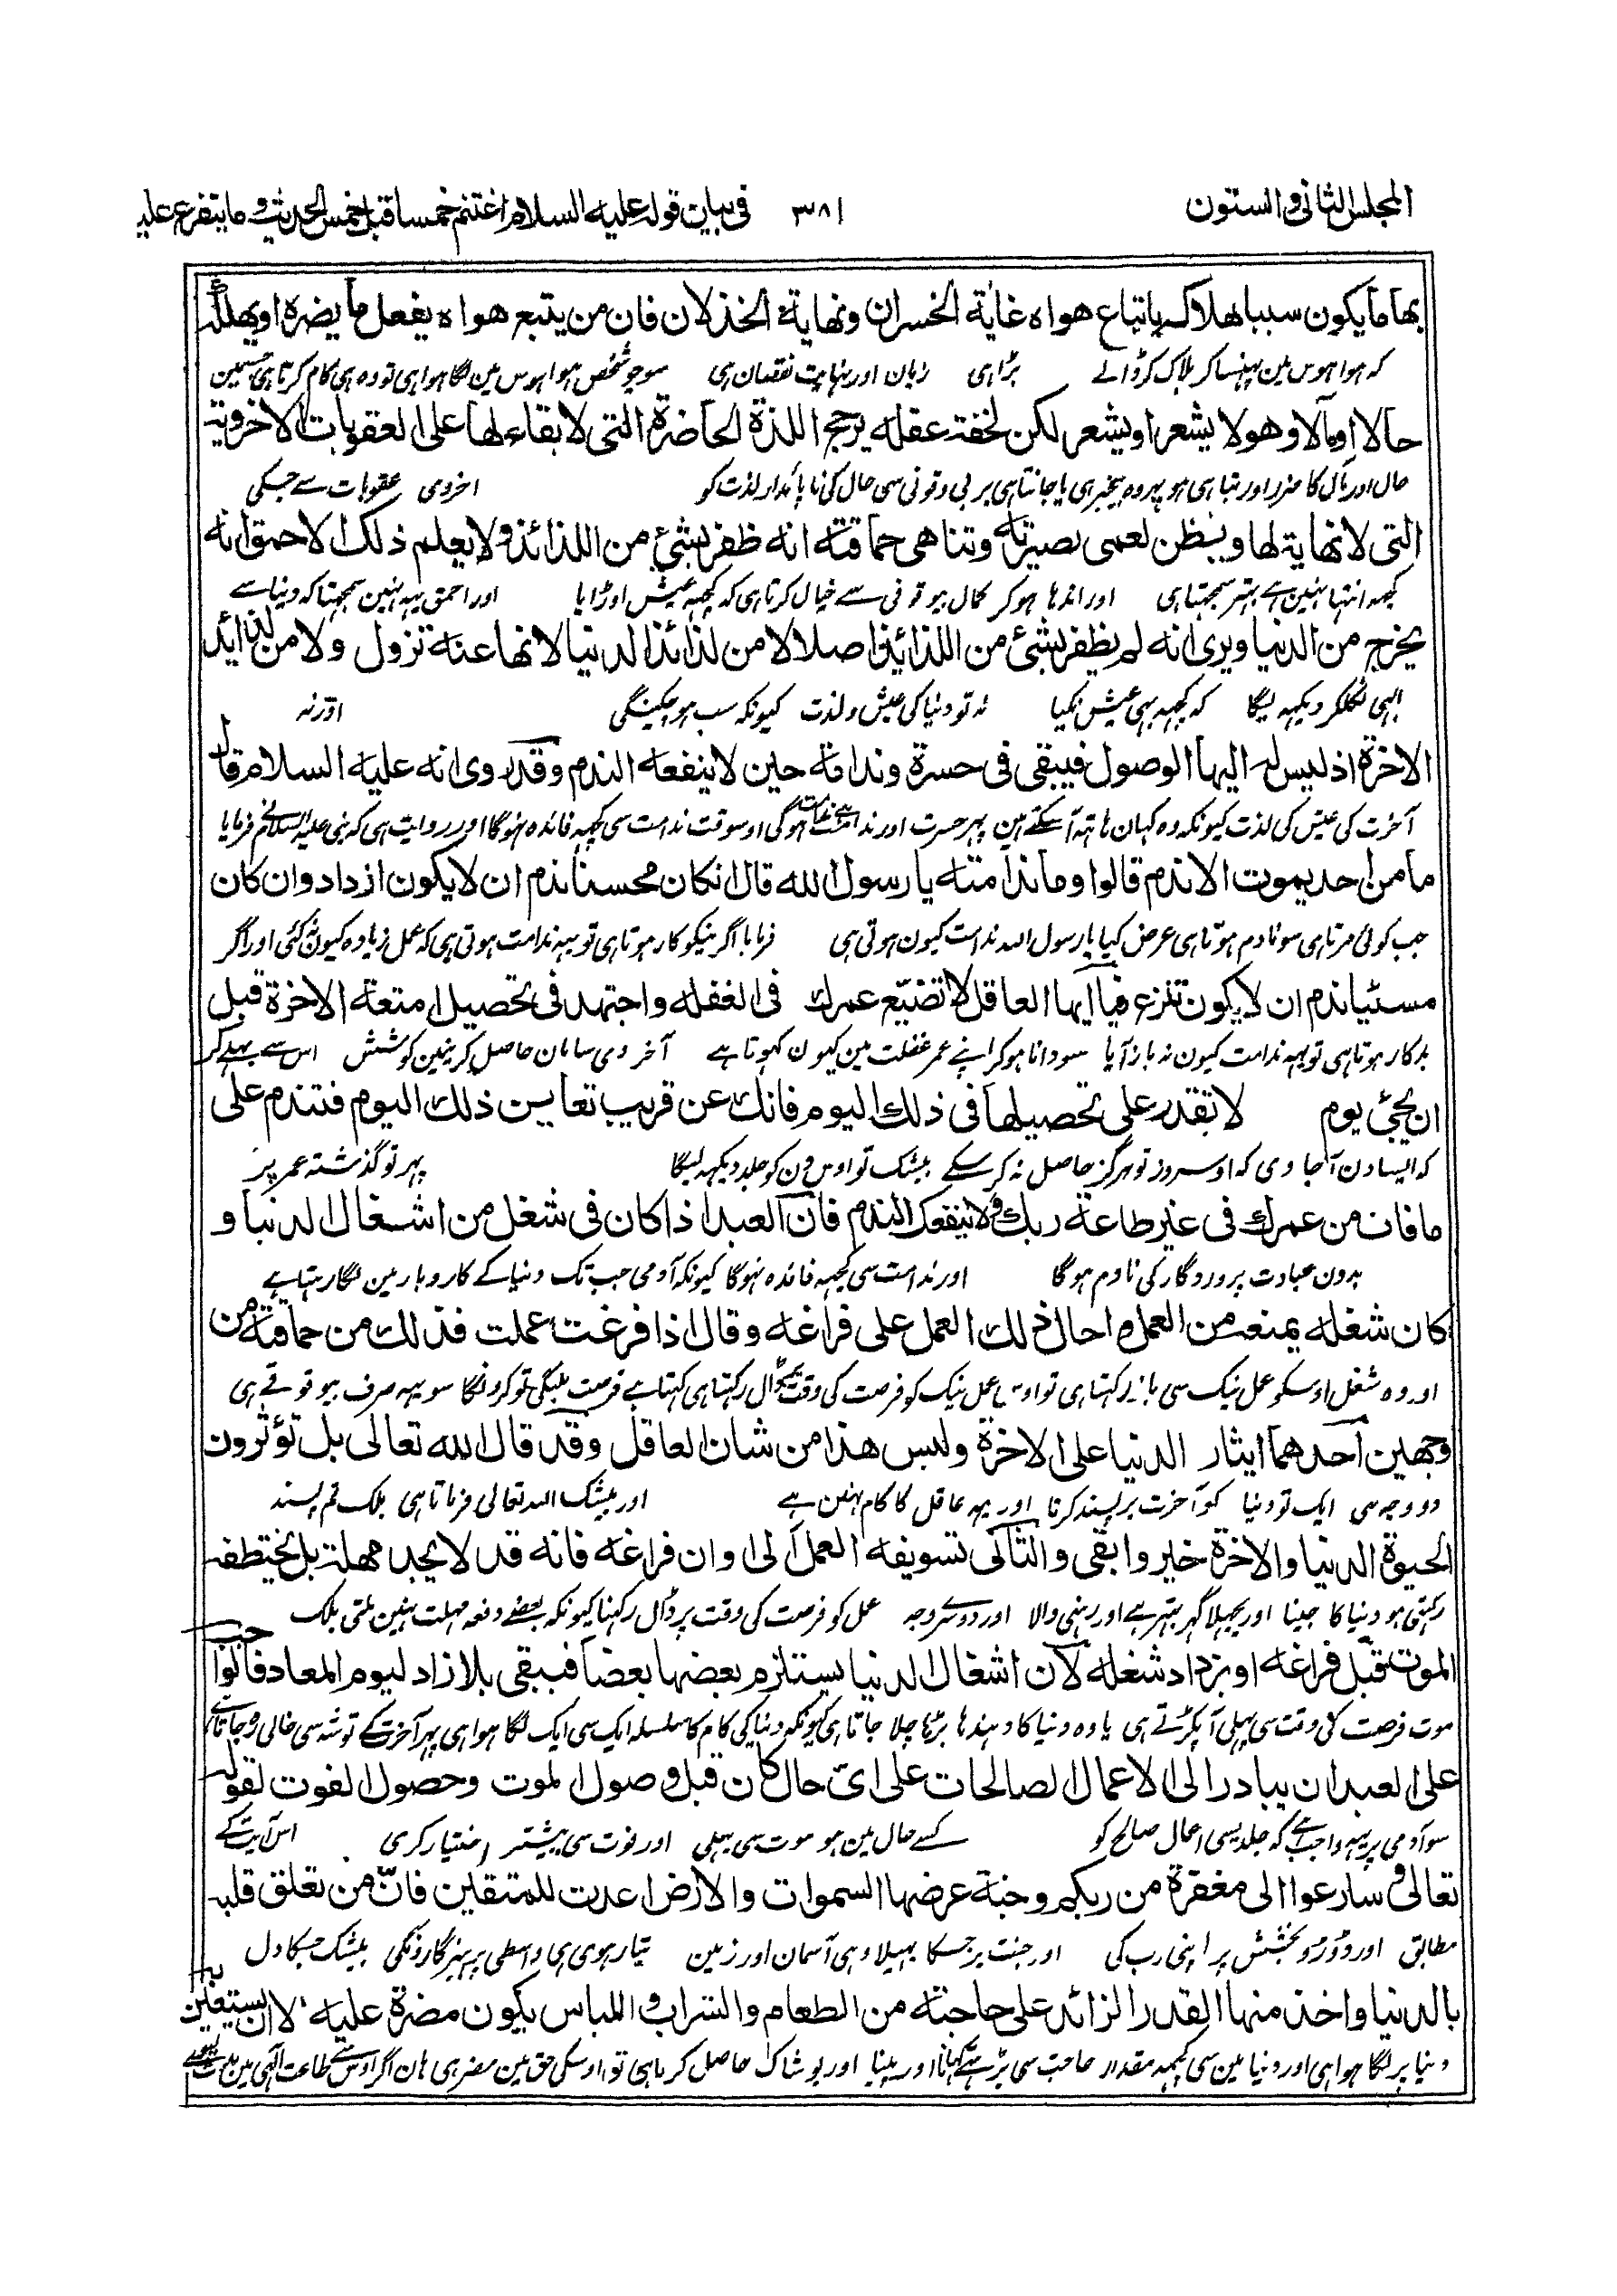 المجلس الثانی والستون ٣٨١ فی بیان قوله علیه السلام اغتنم خمسا قبل خمس الحدیث وما یتفرع علیه
بها ما یکون سببا لهلاکه باتباع هواه غایة الخسران ونهایة الخذلان فان من یتبع هواه یفعل ما یضره او یهلکه
که هوا هوس مین پهنسا کر هلاک کر ڈالے بڑا هی زیان اور نهایت نقصان هی سو جو شخص هوا هوس مین لگا هوا هی تو وه هی کام کرتا هی جسمین
حالا او مآلا وهو لا یشعر او یشعر لکن لخفة عقله یرجح اللذة الحاضرة التی لا بقاء لها علی العقوبات الاخرویة
حال اور مآل کا ضرر اور تباهی هو پهر وه بیخبر هی یا جانتا هی پر بی وقوفی سی حال کی ناپائدار لذت کو اخروی عقوبات سے جسکی
التی لا نهایة لها ویظن لعمی بصیرته وتناهی حماقته انه ظفر بشئ من اللذائذ ولا یعلم ذلک الاحمق انه
کچهه انتها نهین هے بهتر سمجهتا هی اور اندها هو کر کمال بیوقوفی سے خیال کرتا هی که کچهه عیش اوڑایا اور احمق یهه نهین سمجهتا که دنیا سے
یخرج من الدنیا ویری انه لم یظفر بشئ من اللذائذ اصلا لا من لذائذ الدنیا لانها عنه تزول ولا من لذائذ
ابهی نکلکر دیکهه لیگا که کچهه بهی عیش نکیا نه تو دنیا کی عیش و لذت کیونکه سب هو چکینگی اور نه
الاخرة اذ لیس له الیها الوصول فیبقی فی حسرة وندامة حین لا ینفعه الندم وقد روی انه علیه السلام قال
آخرت کی عیش کی لذت کیونکه وه کهان هاتهه آ سکتے هین پهر حسرت اور ندامت هوگی اوسوقت ندامت سی کچهه فائده نهوگا اور روایت هی که نبی علیه السلام نے فرمایا
ما من احد یموت الا ندم قالوا وما ندامته یا رسول الله قال ان کان محسنا ندم ان لا یکون ازداد وان کان
جب کوئی مرتا هی سو نادم هوتا هی عرض کیا یا رسول الله ندامت کیون هوتی هی فرمایا اگر نیکوکار هوتا هی تو یهه ندامت هوتی هی که عمل زیاده کیون نه کئی اور اگر
مسئیا ندم ان لا یکون تنزع فیا ایها العاقل لا تضیّع عمرک فی الغفلة واجتهد فی تحصیل امتعة الاخرة قبل
بدکار هوتا هی تو یهه ندامت کیون نه باز آیا سو دانا هو کر اپنے عمر غفلت مین کیون کهوتا هے آخروی سامان حاصل کرنیین کوشش اس سے پهلے کر
ان یجئ یوم لا تقدر علی تحصیلها فی ذلک الیوم فانک عن قریب تعاین ذلک الیوم فتندم علی
که ایسا دن آ جاوی که اوسروز تو هرگز حاصل نه کر سکے بیشک تو اوس دن کو جلد دیکهه لیگا پهر تو گذشته عمر پر
ما فات من عمرک فی غیر طاعة ربک ولا ینفعک الندم فان العبد اذا کان فی شغل من اشغال الدنیا و
بدون عبادت پروردگار کی نادم هوگا اور ندامت سی کچهه فائده نهوگا کیونکه آدمی جب تک دنیا کے کاروبار مین لگا رهتا هے
کان شغله یمنعه من العمل واحال ذلک العمل علی فراغه وقال اذا فرغت عملت فذلک من حماقته من
اور وه شغل اوسکو عمل نیک سی باز رکهتا هی تو اوس عمل نیک کو فرصت کی وقت پر ڈال رکهتا هی کهتا هے فرصت ملیگی تو کرونگا سو یهه صرف بیوقوفے هی
وجهین احدهما ایثار الدنیا علی الاخرة ولیس هذا من شان العاقل وقد قال الله تعالی بل تؤثرون
دو وجه سی ایک تو دنیا کو آخرت پر پسند کرنا اور یهه عاقل کا کام نهین هے اور بیشک الله تعالی فرماتا هی بلکه تم پسند
الحیوة الدنیا والاخرة خیر وابقی والثانی تسویفه العمل الی اوان فراغه فانه قد لا یجد مهلة بل یختطفه
رکهتی هو دنیا کا جینا اور پچهلا گهر بهتر هے اور رهنی والا اور دوسرے وجه عمل کو فرصت کی وقت پر ڈال رکهنا کیونکه بعضے دفعه مهلت نهین ملتی بلکه
الموت قبل فراغه او یزداد شغله لان اشغال الدنیا یستلزم بعضها بعضا فیبقی بلا زاد لیوم المعاد فالواجب
موت فرصت کی وقت سی پهلی آ پکڑتے هی یا وه دنیا کا دهندها بڑها چلا جاتا هی کیونکه دنیا کی کام کا سلسله ایک سی ایک لگا هوا هی پهر آخرت کے توشه سی خالی ره جاتا هے
علی العبد ان یبادر الی الاعمال الصالحات علی ایّ حال کان قبل وصول الموت وحصول الفوت لقوله
سو آدمی پر یهه واجب هے که جلد یسی اعمال صالح کو کسے حال مین هو موت سی پهلی اور فوت سی پیشتر اختیار کری اس آیت کے
تعالی وسارعوا الی مغفرة من ربکم وجنة عرضها السموات والارض اعدت للمتقین فانّ من تعلق قلبه
مطابق اور دوڑو بخشش پر اپنی رب کی اور جنت پر جسکا پهیلاو هی آسمان اور زمین تیار هوی هی واسطی پرهیزگارونکی بیشک جسکا دل
بالدنیا واخذ منها القدر الزائد علی حاجته من الطعام والشراب واللباس یکون مضرة علیه الا ان یستعین به
دنیا پر لگا هوا هی اور دنیا مین سی کچهه مقدار حاجت سی بڑهے کهانا اور پینا اور پوشاک حاصل کر یا هی تو اوسکی حق مین مضر هی هان اگر اوس سے طاعت الهی مین